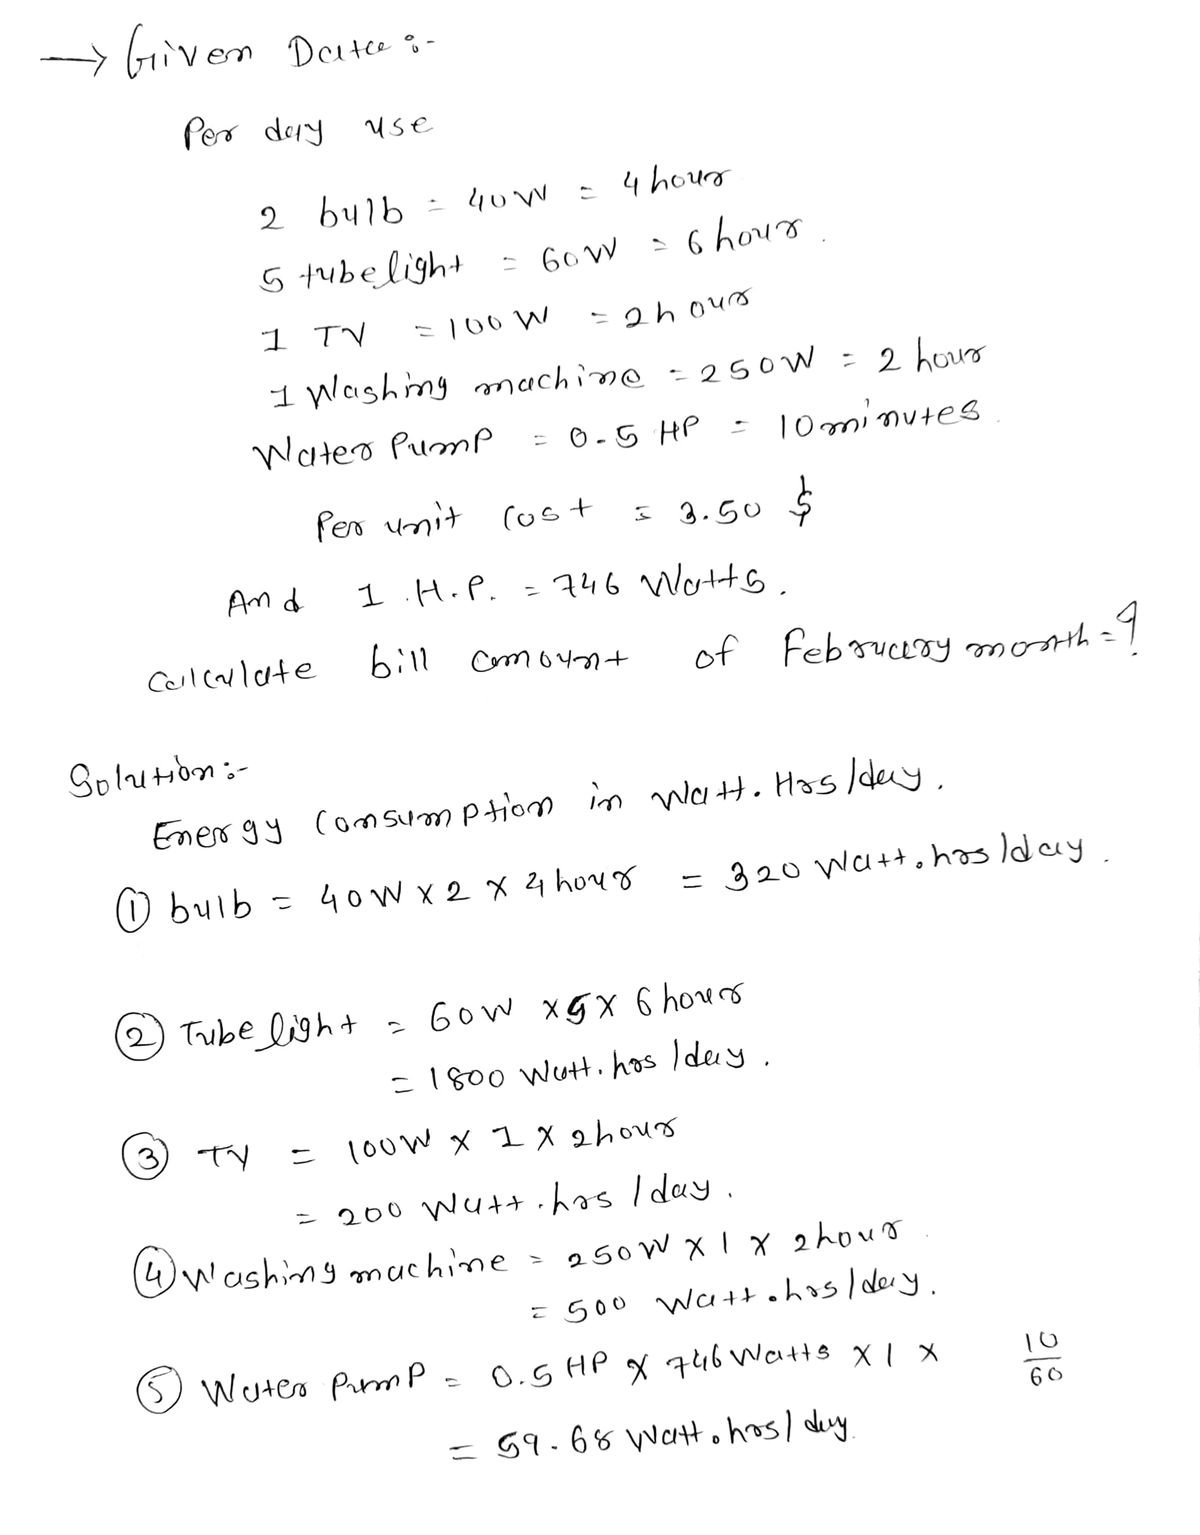 → Given Data :-
Per day use
2 bulb = 40W = 4 hour
5 tubelight = 60W = 6 hour.
1 TV = 100 W = 2 hour
1 Washing machine = 250W = 2 hour
Water Pump = 0.5 HP = 10 minutes.
Per unit cost = 3.50 $
And 1 .H.P. = 746 Watts.
Calculate bill amount of February month = ?
Solution :-
Energy Consumption in Watt. Hrs /day.
① bulb = 40W x 2 x 4 hour = 320 Watt.hrs /day.
② Tube light = 60W x 5 x 6 hour
= 1800 Watt.hrs /day.
③ TV = 100W x 1 x 2hour
= 200 Watt.hrs /day.
④ Washing machine = 250W x 1 x 2hour
= 500 Watt.hrs/day.
⑤ Water Pump = 0.5 HP x 746 Watts x 1 x 10/60
= 59.68 Watt.hrs/day.